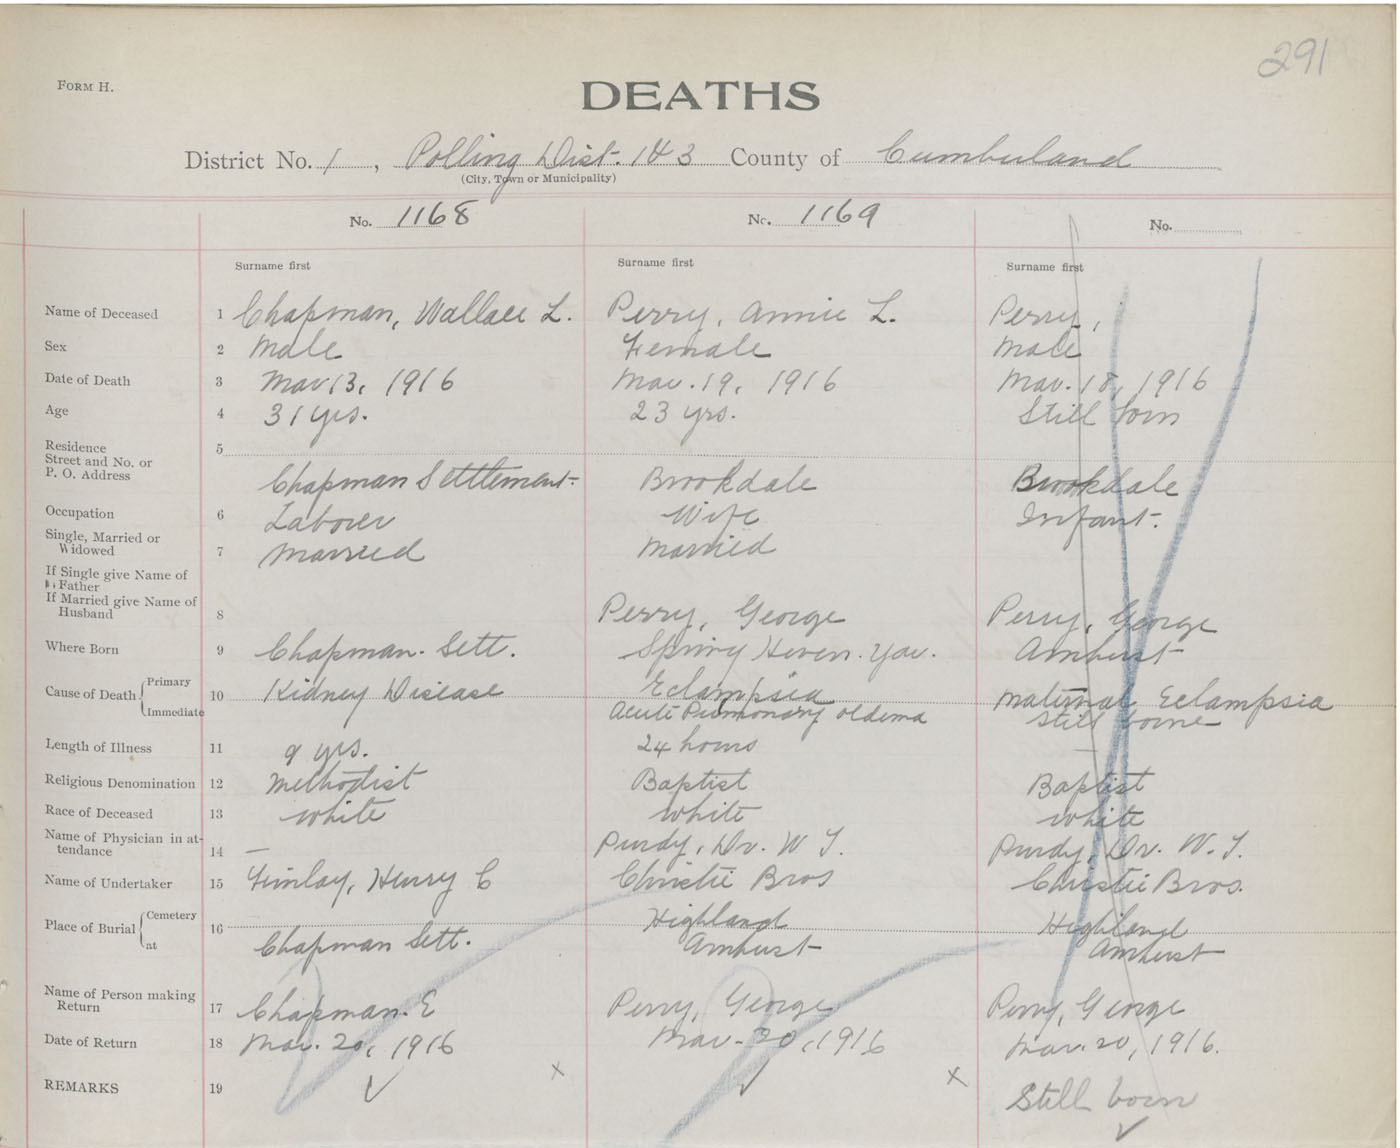 291
FORM H.
DEATHS
District No. 1, Polling Dist. 1 & 3 County of Cumberland
(City, Town or Municipality)
No. 1168 No. 1169 No.
Surname first Surname first Surname first
Name of Deceased 1 Chapman, Wallace L. Perry, Annie L. Perry,
Sex 2 Male Female Male
Date of Death 3 Mar 13, 1916 Mar. 19, 1916 Mar. 18, 1916
Age 4 31 yrs. 23 yrs. Still born
Residence 5
Street and No. or
P. O. Address Chapman Settlement Brookdale Brookdale
Occupation 6 Laborer Wife Infant.
Single, Married or
Widowed 7 Married Married
If Single give Name of
Father
If Married give Name of
Husband 8 Perry, George Perry, George
Where Born 9 Chapman. Sett. Spring Haven. Yar. Amherst
Cause of Death Primary 10 Kidney Disease Eclampsia Maternal Eclampsia
Immediate Acute Pulmonary oldema Still borne
Length of Illness 11 9 yrs. 24 hours —
Religious Denomination 12 Methodist Baptist Baptist
Race of Deceased 13 White White White
Name of Physician in at-
tendance 14 — Purdy, Dr. W T. Purdy, Dr. W. T.
Name of Undertaker 15 Finlay, Henry C Christie Bros Christie Bros.
Place of Burial Cemetery 16 Highland Highland
at Chapman Sett. Amherst Amherst
Name of Person making
Return 17 Chapman. E Perry, George Perry, George
Date of Return 18 Mar. 20, 1916 Mar. 20, 1916 Mar. 20, 1916.
REMARKS 19 Still born